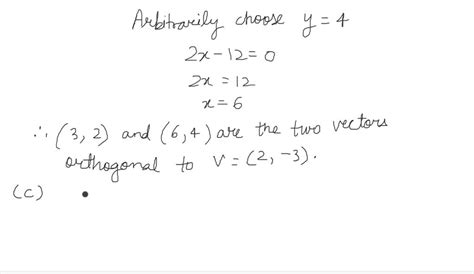 Arbitrarily choose y = 4
2x - 12 = 0
2x = 12
x = 6
∴ (3, 2) and (6, 4) are the two vectors
orthogonal to v = (2, -3).
(C)